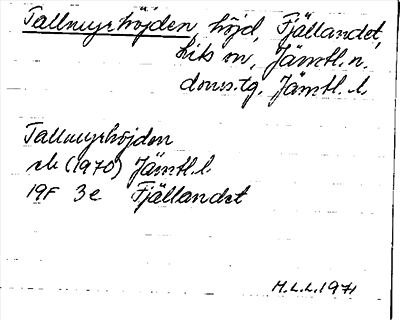 Tallmyrhöjden, höjd, Fjällandet,
Lits sn, Jämtl. n.
doms.tg, Jämtl. l.
Tallmyrhöjden
ek (1970) Jämtl. l
19F 3e Fjällandet
M.L.L. 1971